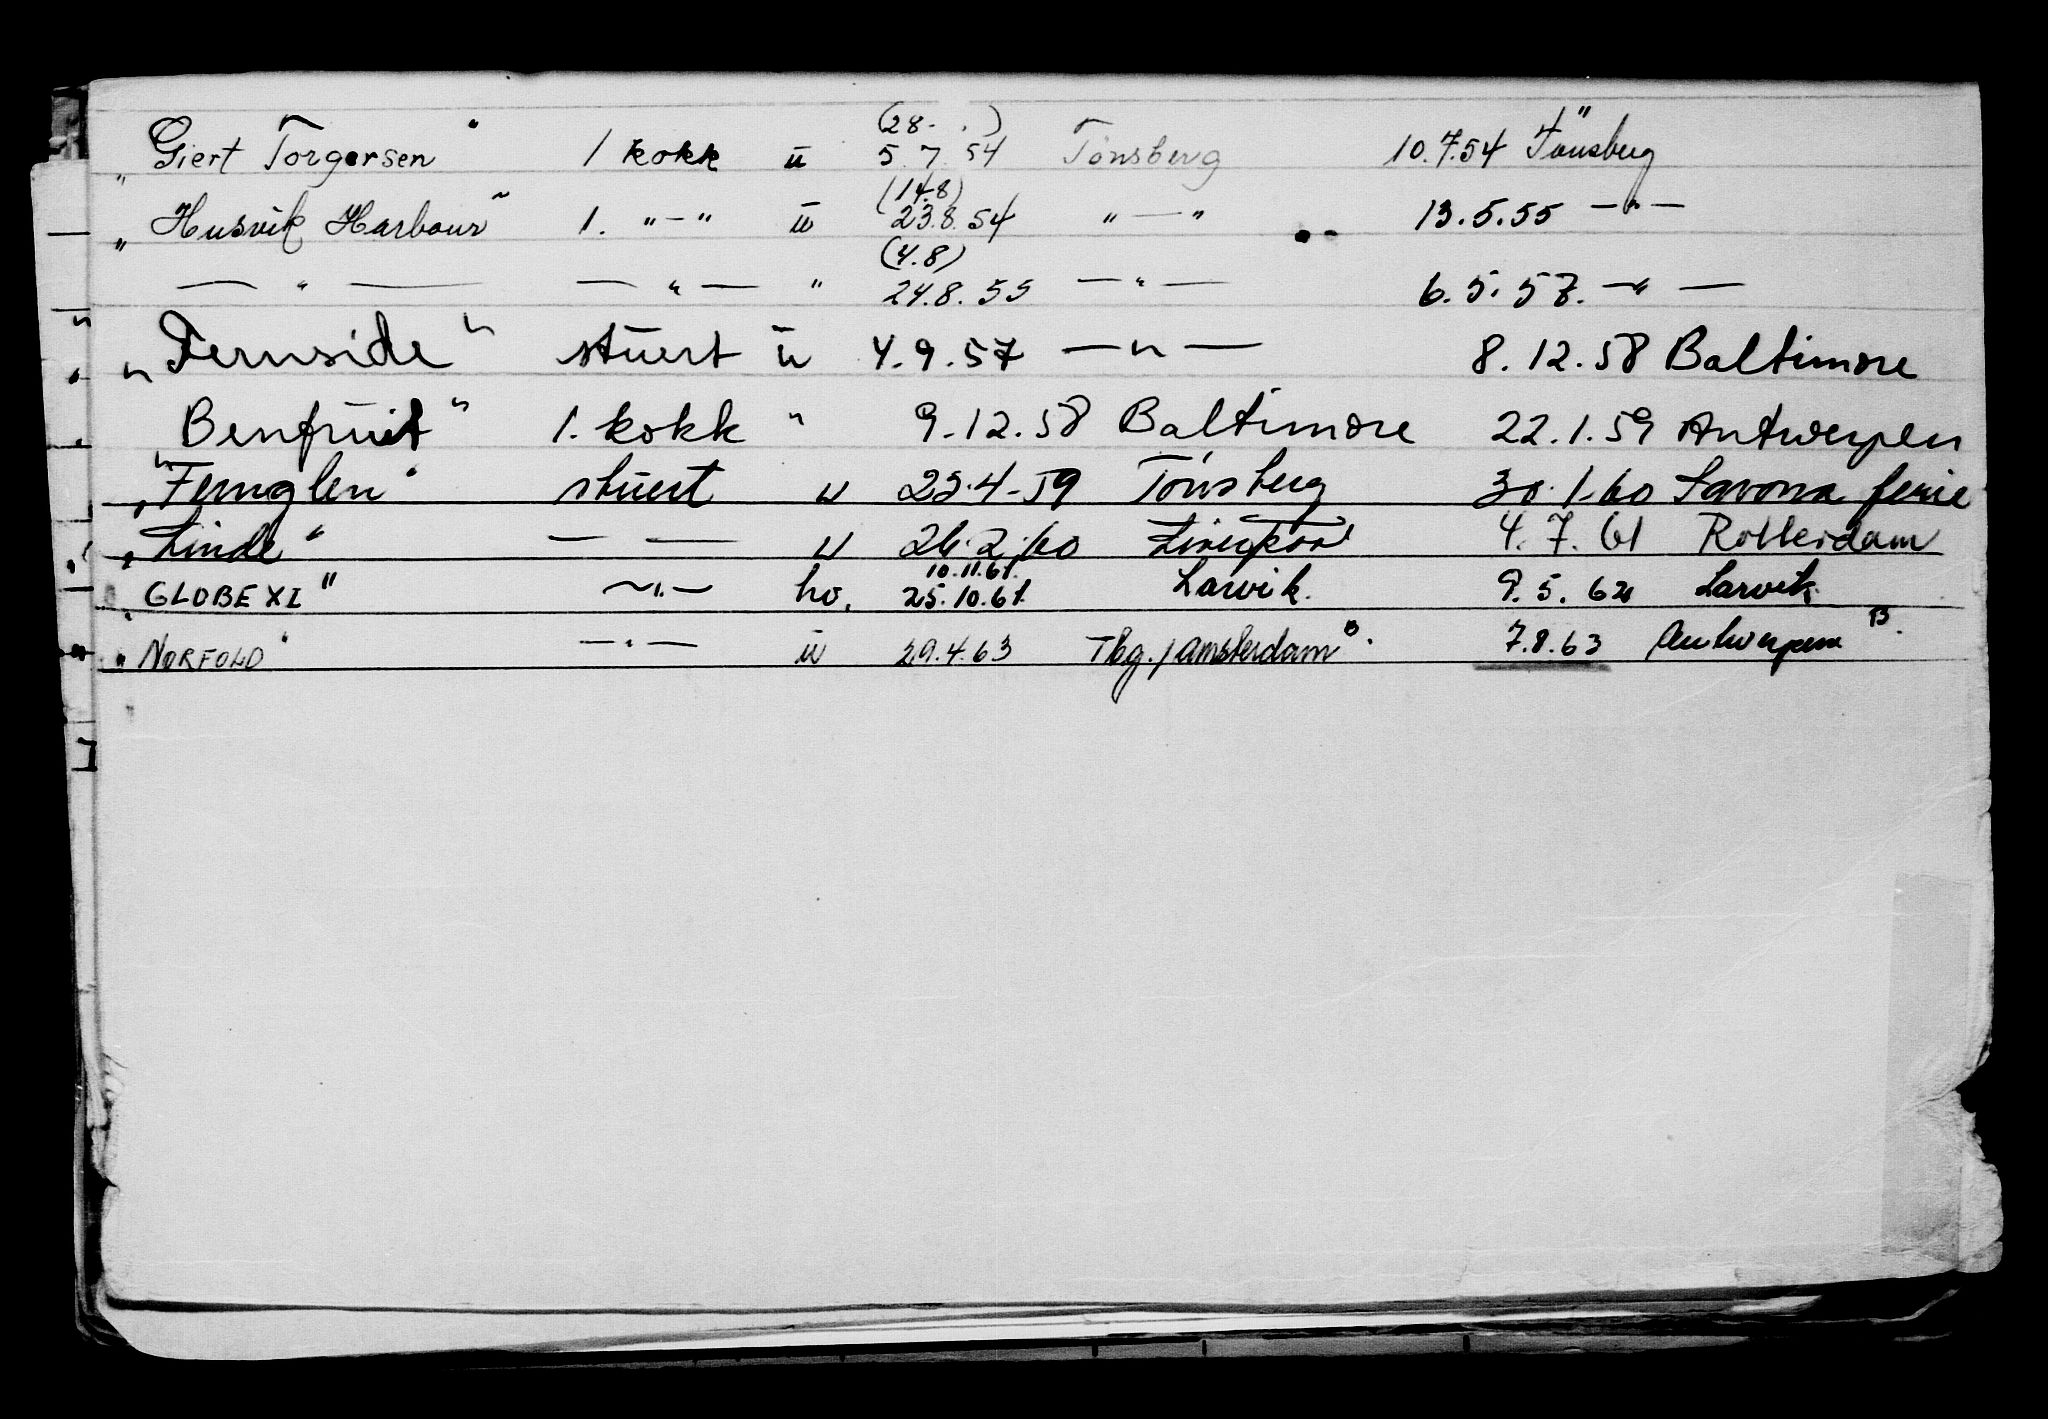 (28- . )
„Giert Torgersen“ 1 kokk u 5.7.54 Tönsberg 10.7.54 Tönsberg
(14.8)
„Husvik Harbour“ 1. "—" u 23.8.54 "—" 13.5.55 —"—
(4.8)
—"— —"— " 24.8.55 —"— 6.5.57. —"—
„Fernside“ stuert u 4.9.57 —"— 8.12.58 Baltimore
„Benfruit“ 1. kokk " 9.12.58 Baltimore 22.1.59 Antwerpen
„Fernglen“ stuert u 23.4-59 Tönsberg 30.1-60 Savona ferie
„Linde“ — — u 26.2.60 Liverpool 4.7.61 Rotterdam
10.11.61.
„GLOBE XI“ —"— ho. 25.10.61. Larvik. 9.5.62 Larvik.
„NORFOLD“ —"— u 29.4.63 Tbg./Amsterdam B. 7.8.63 Antwerpen B.